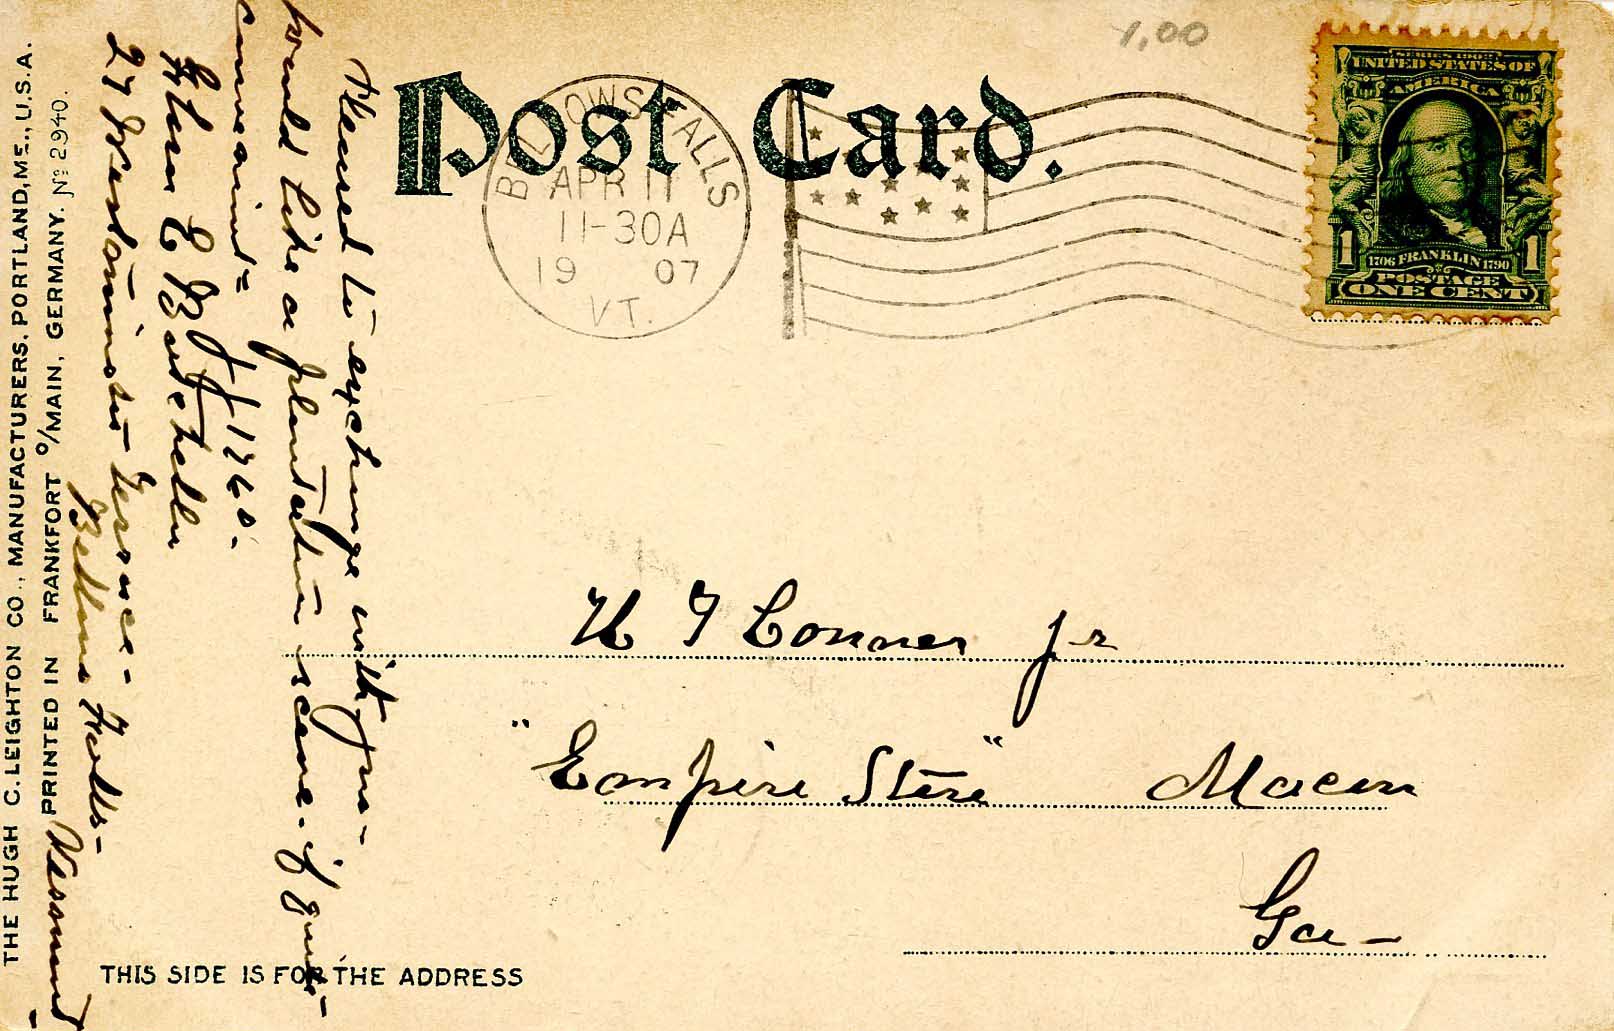 1,00
Post Card.
BELLOWS FALLS
APR 11
11-30A
19 07
VT.
SERIES 1902
UNITED STATES OF
AMERICA
1706 FRANKLIN 1790
1 1
POSTAGE
ONE CENT
Pleased to exchange with you -
would like a plantation scene - if quite
convenient =
J J 1760 -
27 Westminster Terrace -
Bellows Falls -
Vermont -
H T Conner Jr
"Empire Store" Macon
Ga -
THIS SIDE IS FOR THE ADDRESS
THE HUGH C. LEIGHTON CO., MANUFACTURERS, PORTLAND, ME., U.S.A.
PRINTED IN FRANKFORT o/MAIN, GERMANY. No 2940.